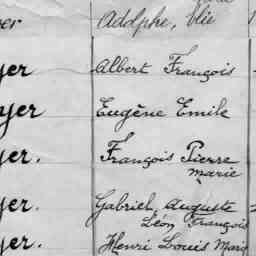 er Adolphe, Élie
yer Albert François
yer Eugène Emile
yer. François Pierre
Marie
yer. Gabriel Auguste
Léon François
yer. Henri Louis Marie